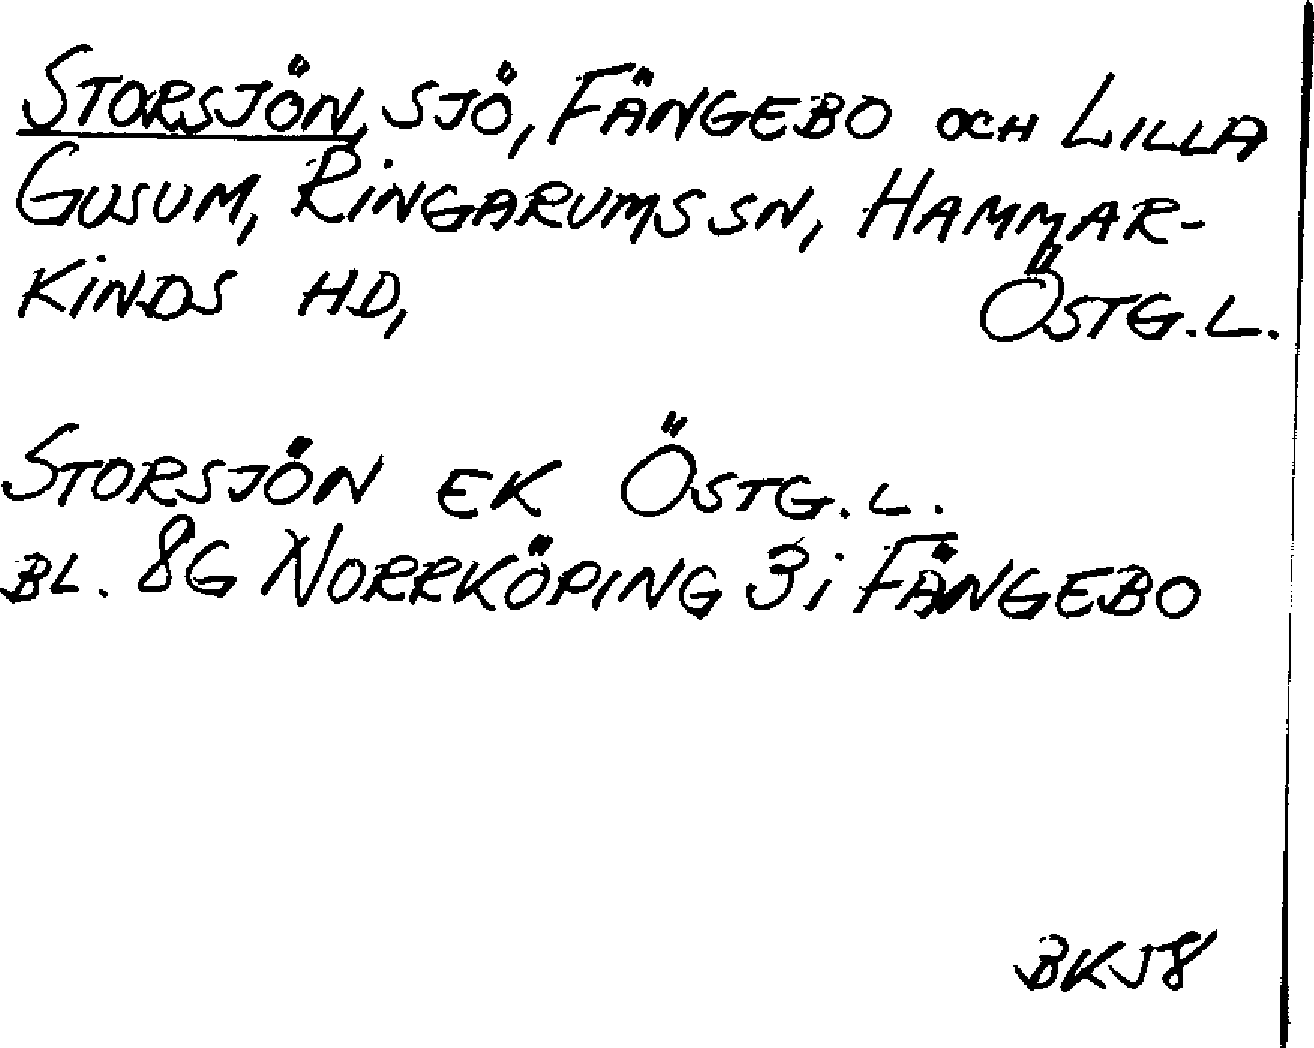 STORSJÖN, SJÖ, FÄNGEBO OCH LILLA
GUSUM, RINGARUMS SN, HAMMAR-
KINDS HD, ÖSTG.L.
STORSJÖN EK ÖSTG.L.
BL. 8G NORRKÖPING 3i FÄNGEBO
BKJ8